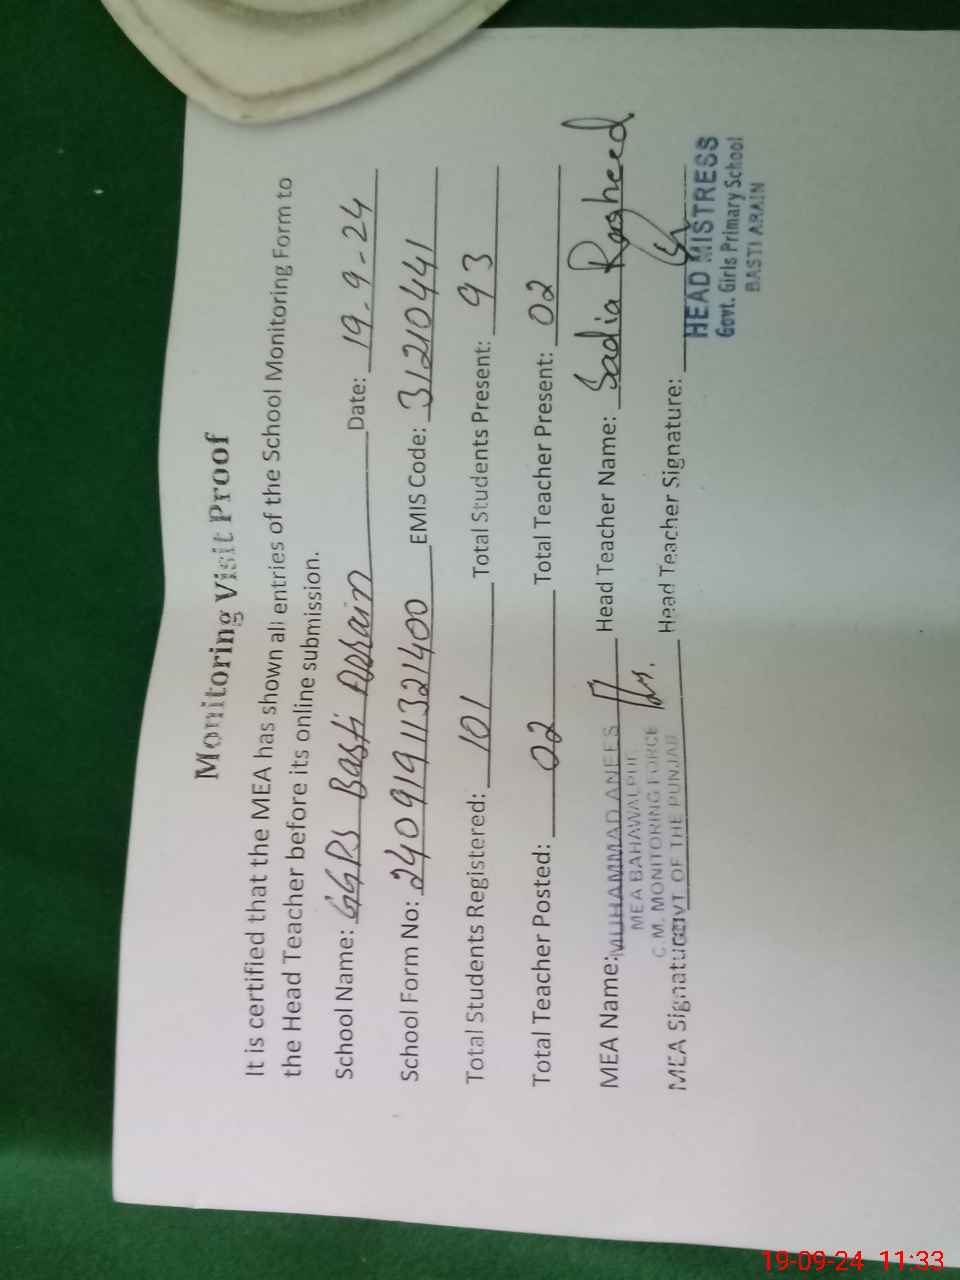 Monitoring Visit Proof
It is certified that the MEA has shown all entries of the School Monitoring Form to
the Head Teacher before its online submission.
School Name: GGPS Basti Arrain Date: 19-9-24
School Form No: 24091911321400 EMIS Code: 31210441
Total Students Registered: 101 Total Students Present: 93
Total Teacher Posted: 02 Total Teacher Present: 02
MEA Name: MUHAMMAD ANEES Head Teacher Name: Sadia Rasheed
MEA BAHAWALPUR
C.M. MONITORING FORCE
MEA Signature: GOVT OF THE PUNJAB Head Teacher Signature:
HEAD MISTRESS
Govt. Girls Primary School
BASTI ARAIN
19-09-24 11:33